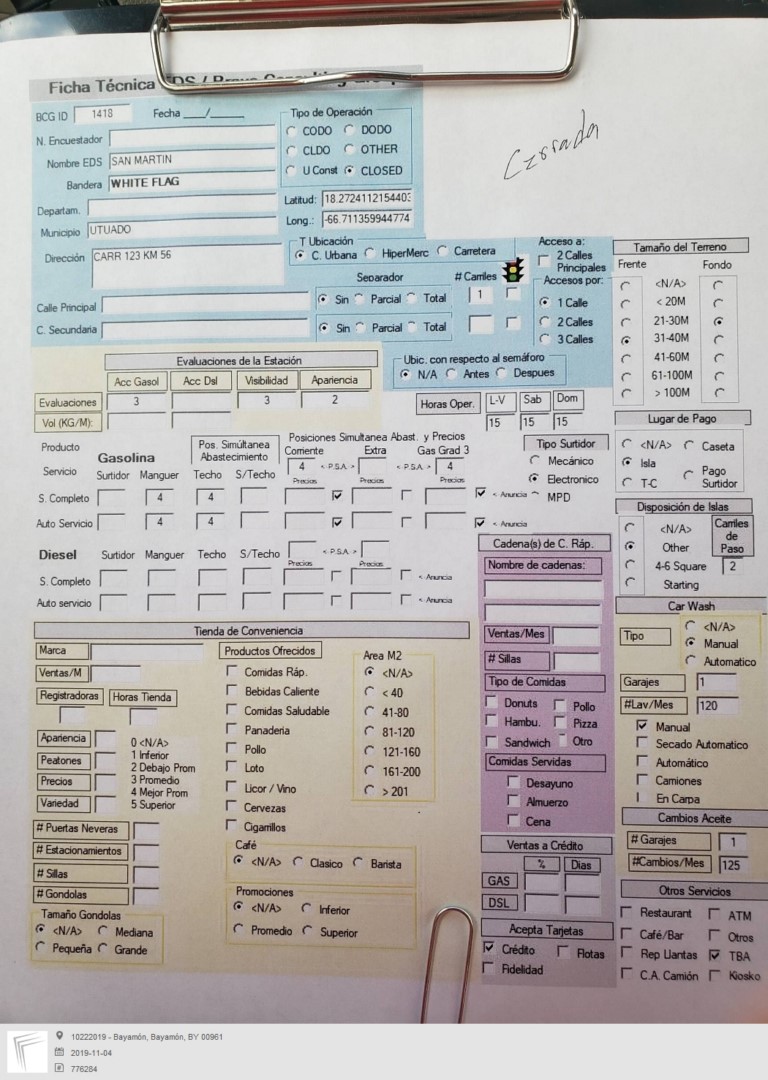 Ficha Técnica EDS /
BCG ID 1418 Fecha __/__
N. Encuestador
Nombre EDS SAN MARTIN
Bandera WHITE FLAG
Departam.
Municipio UTUADO
Dirección CARR 123 KM 56
Calle Principal
C. Secundaria
Tipo de Operación
CODO DODO
CLDO OTHER
U Const CLOSED
Latitud: 18.2724112154403
Long.: -66.711359944774
Cerrada
T Ubicación
C. Urbana HiperMerc Carretera
Separador # Carriles
Sin Parcial Total 1
Sin Parcial Total
Acceso a:
2 Calles
Principales
Accesos por:
1 Calle
2 Calles
3 Calles
Tamaño del Terreno
Frente Fondo
<N/A>
< 20M
21-30M
31-40M
41-60M
61-100M
> 100M
Evaluaciones de la Estación
Acc Gasol Acc Dsl Visibilidad Apariencia
Evaluaciones 3 3 2
Vol (KG/M):
Ubic. con respecto al semáforo
N/A Antes Despues
Horas Oper. L-V Sab Dom
15 15 15
Lugar de Pago
<N/A> Caseta
Isla
T-C Pago
Surtidor
Producto Gasolina Pos. Simúltanea
Abastecimiento
Posiciones Simultanea Abast. y Precios
Corriente Extra Gas Grad 3
Servicio Surtidor Manguer Techo S/Techo 4 <-P.S.A.-> <-P.S.A.-> 4
Precios Precios Precios
S. Completo 4 4 <-Anuncia
Auto Servicio 4 4 <-Anuncia
Tipo Surtidor
Mecánico
Electronico
MPD
Disposición de Islas
<N/A> Carriles
de
Paso
Other
4-6 Square 2
Starting
Diesel Surtidor Manguer Techo S/Techo <-P.S.A.->
Precios Precios
S. Completo <-Anuncia
Auto servicio <-Anuncia
Cadena(s) de C. Ráp.
Nombre de cadenas:
Ventas/Mes
# Sillas
Tipo de Comidas
Donuts Pollo
Hambu. Pizza
Sandwich Otro
Comidas Servidas
Desayuno
Almuerzo
Cena
Car Wash
Tipo <N/A>
Manual
Automatico
Garajes 1
#Lav/Mes 120
Manual
Secado Automatico
Automático
Camiones
En Carpa
Tienda de Conveniencia
Marca
Ventas/M
Registradoras Horas Tienda
Apariencia
Peatones
Precios
Variedad
0 <N/A>
1 Inferior
2 Debajo Prom
3 Promedio
4 Mejor Prom
5 Superior
# Puertas Neveras
# Estacionamientos
# Sillas
# Gondolas
Tamaño Gondolas
<N/A> Mediana
Pequeña Grande
Productos Ofrecidos
Comidas Ráp.
Bebidas Caliente
Comidas Saludable
Panaderia
Pollo
Loto
Licor / Vino
Cervezas
Cigarrillos
Area M2
<N/A>
< 40
41-80
81-120
121-160
161-200
> 201
Café
<N/A> Clasico Barista
Promociones
<N/A> Inferior
Promedio Superior
Ventas a Crédito
% Dias
GAS
DSL
Acepta Tarjetas
Crédito Flotas
Fidelidad
Cambios Aceite
# Garajes 1
#Cambios/Mes 125
Otros Servicios
Restaurant ATM
Café/Bar Otros
Rep Llantas TBA
C.A. Camión Kiosko
10222019 - Bayamón, Bayamón, BY 00961
2019-11-04
776284